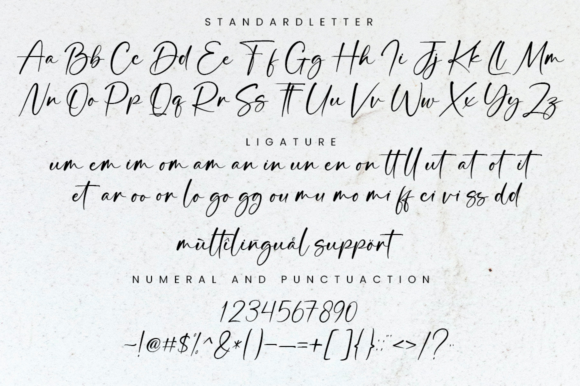 STANDARDLETTER
Aa Bb Cc Dd Ee Ff Gg Hh Ii Jj Kk Ll Mm
Nn Oo Pp Qq Rr Ss Tt Uu Vv Ww Xx Yy Zz
LIGATURE
um em im om am an in un en on tt ll ut at ot it
et ar oo or lo go gg ou mu mo mi ff ci vi ss dd
mùltilinguál support
NUMERAL AND PUNCTUACTION
1234567890
~!@#$%^&*()-—=+[]{}:;<>/?.